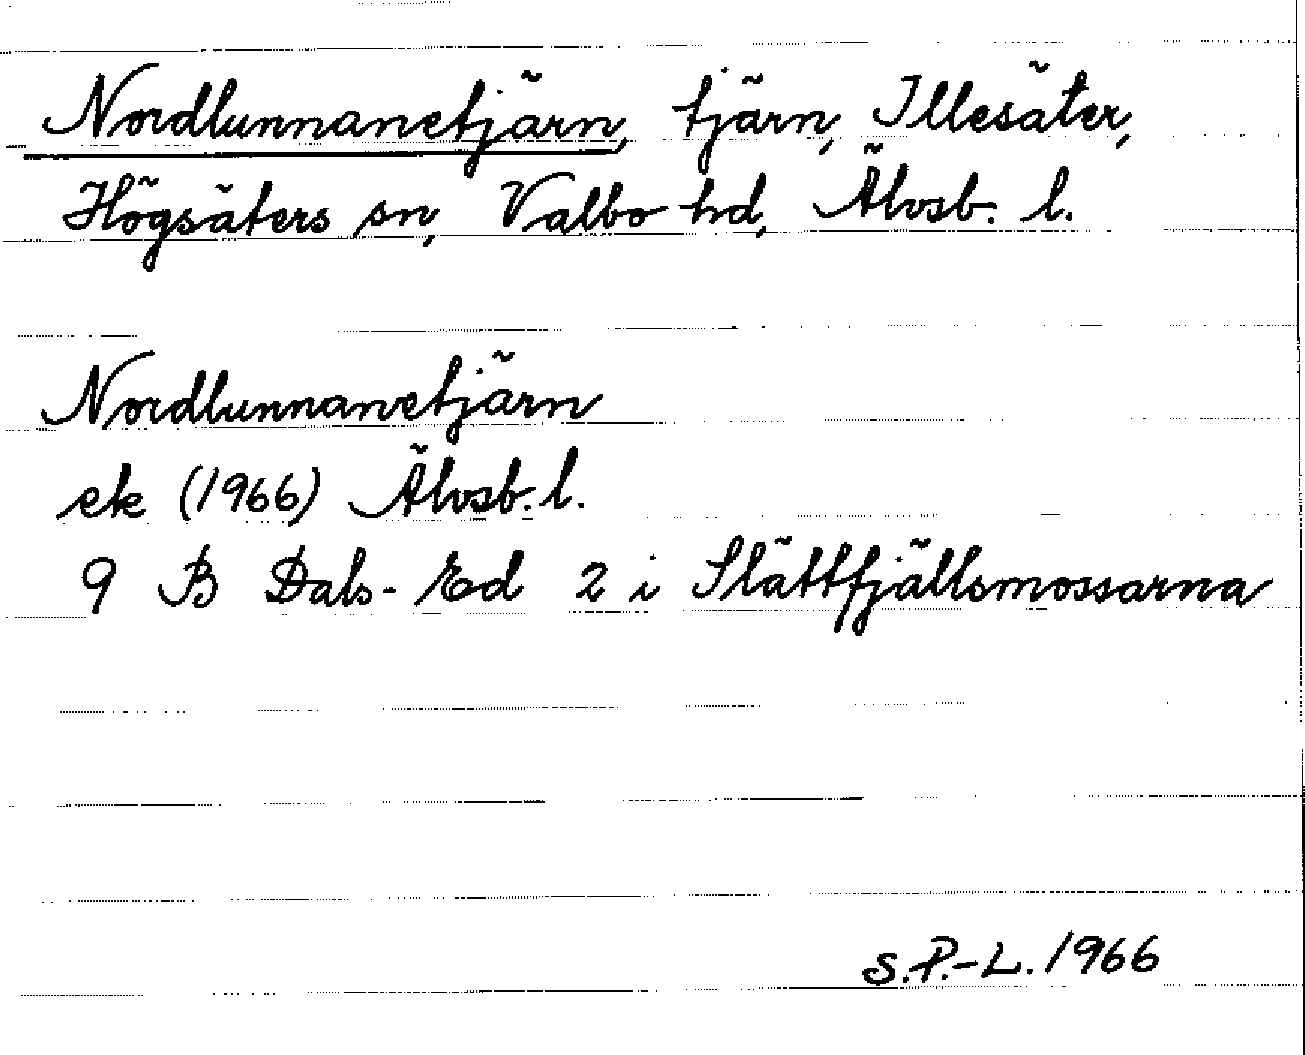 Nordlunnanetjärn, tjärn, Illesäter,
Högsäters sn, Valbo hd, Älvsb. l.
Nordlunnanetjärn
ek (1966) Älvsb. l.
9 B Dals-Ed 2 i Slättfjällsmossarna
S.P.-L. 1966